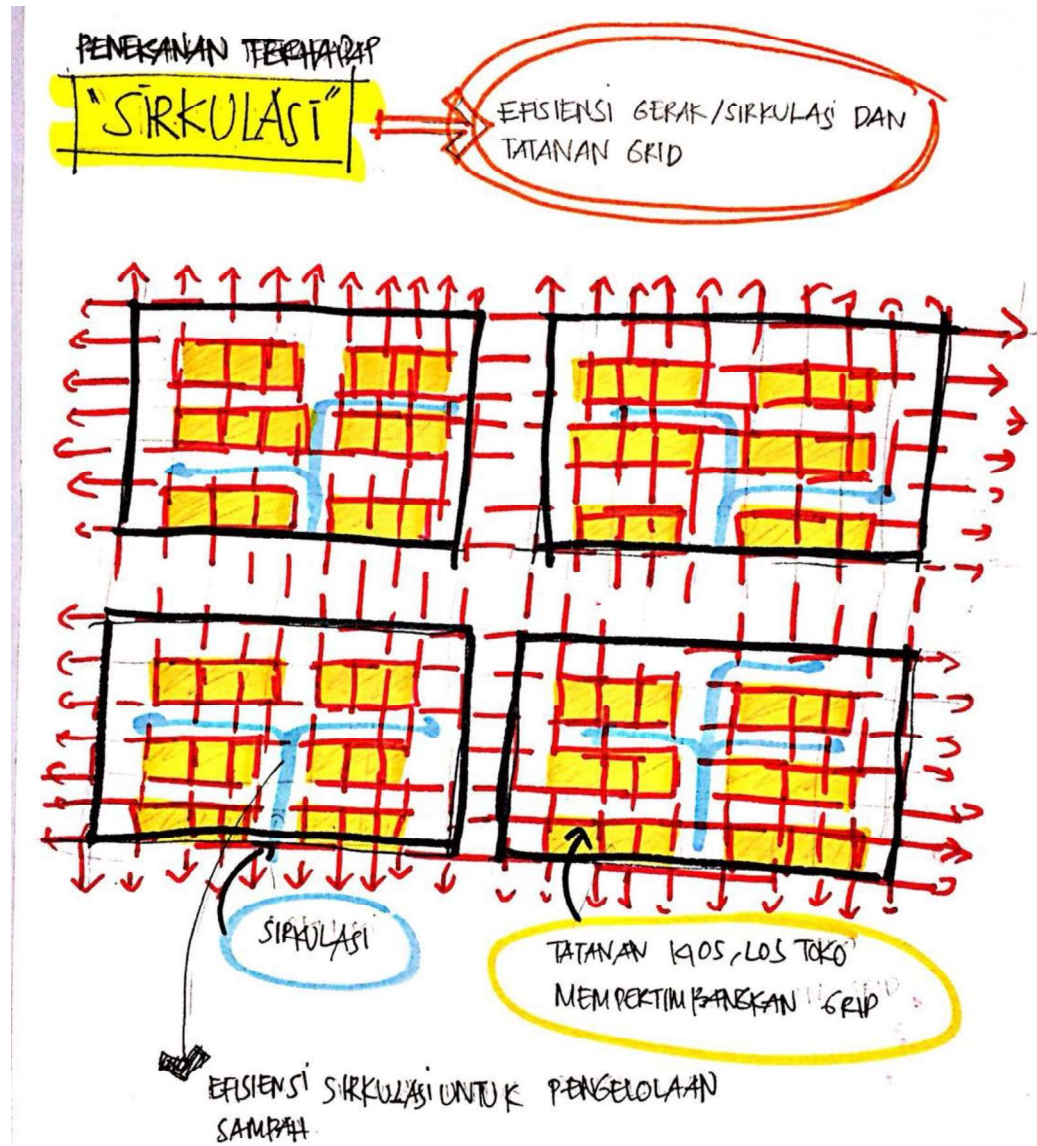 PENEKANAN TERHADAP
"SIRKULASI"
EFISIENSI GERAK/SIRKULASI DAN
TATANAN GRID
SIRKULASI
TATANAN KIOS, LOS TOKO
MEMPERTIMBANGKAN GRID
EFISIENSI SIRKULASI UNTUK PENGELOLAAN
SAMPAH